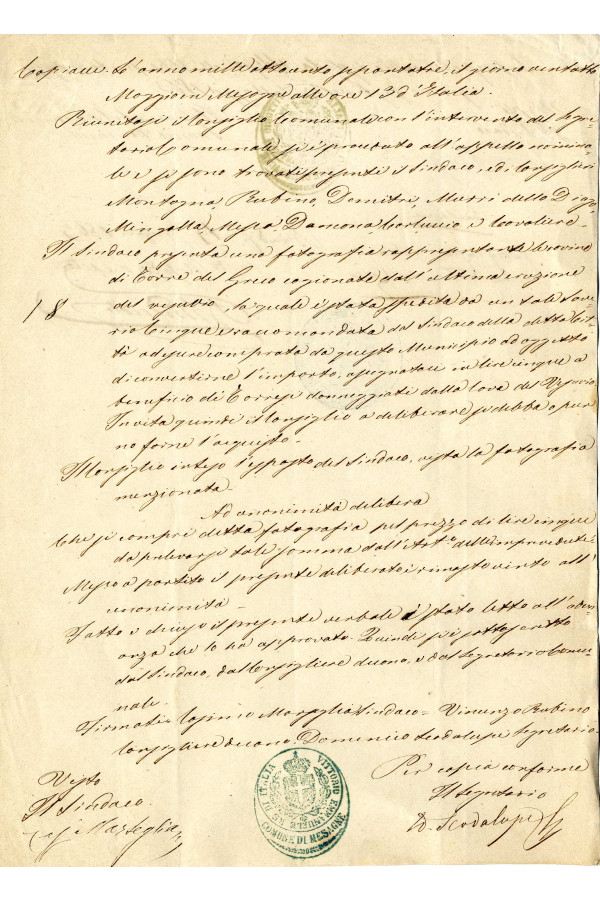 L'anno mille ottocento settantatre, il giorno ventotto
Maggio in Mesagne alle ore 13 d'Italia.
Riunitosi il Consiglio Comunale con l'intervento del Segre-
tario Comunale si è proceduto all'appello nomina-
le e si sono trovati presenti il Sindaco, ed i Consiglieri
Montagna, Rubino, Demitri, Murri della Diago
Mingolla, Messa, Damona Carluccio e Cavaliere.
Il Sindaco presenta una fotografia rappresentante le rovine
di Torre del Greco cagionate dall'ultima eruzione
18
del vesuvio, la quale è stata spedita da un tale Save-
rio Cinque e raccomandata dal Sindaco della detta Cit-
tà ad essere comprata da questo Municipio ad oggetto
di convertirne l'importo, assegnato in lire cinque a
beneficio di Torresi danneggiati dalla lava del Vesuvio.
Invita quindi il Consiglio a deliberare se debba o pur
no farne l'acquisto.
Il Consiglio inteso l'esposto del Sindaco, vista la fotografia
menzionata
Ad unanimità delibera
Che si compri detta fotografia pel prezzo di lire cinque
da prelevarsi tale somma dall'Art.º delle imprevedute.
Messo a partito il presente deliberato è rimasto vinto all'
unanimità.
Fatto e chiuso il presente verbale è stato letto all'adun-
anza che lo ha approvato. Quindi si è sottoscritto
dal Sindaco, dal Consigliere decano, e dal Segretario Comu-
nale.
Firmati Sindaco = Vincenzo Rubino
Consigliere decano, Domenico Scodalupi Segretario.
Per copia conforme
Il Segretario
D. Scodalupi
Visto
Il Sindaco
VITTORIO EMANUELE RE DI ITALIA
COMUNE DI MESAGNE